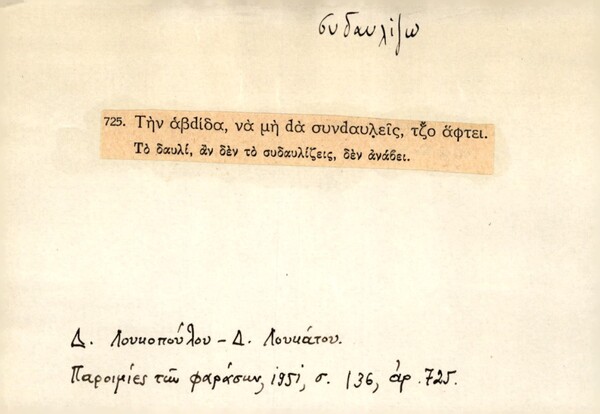 συδαυλίζω
725. Τὴν ἀβdίδα, νὰ μὴ dὰ συνdαυλ̣εῖς, τζ̌ο ἅφτει.
Τὸ δαυλί, ἂν δὲν τὸ συδαυλίζεις, δὲν ἀνάβει.
Δ. Λουκοπούλου - Δ. Λουκάτου.
Παροιμίες τῶν φαράσων, 1951, σ. 136, ἀρ. 725.